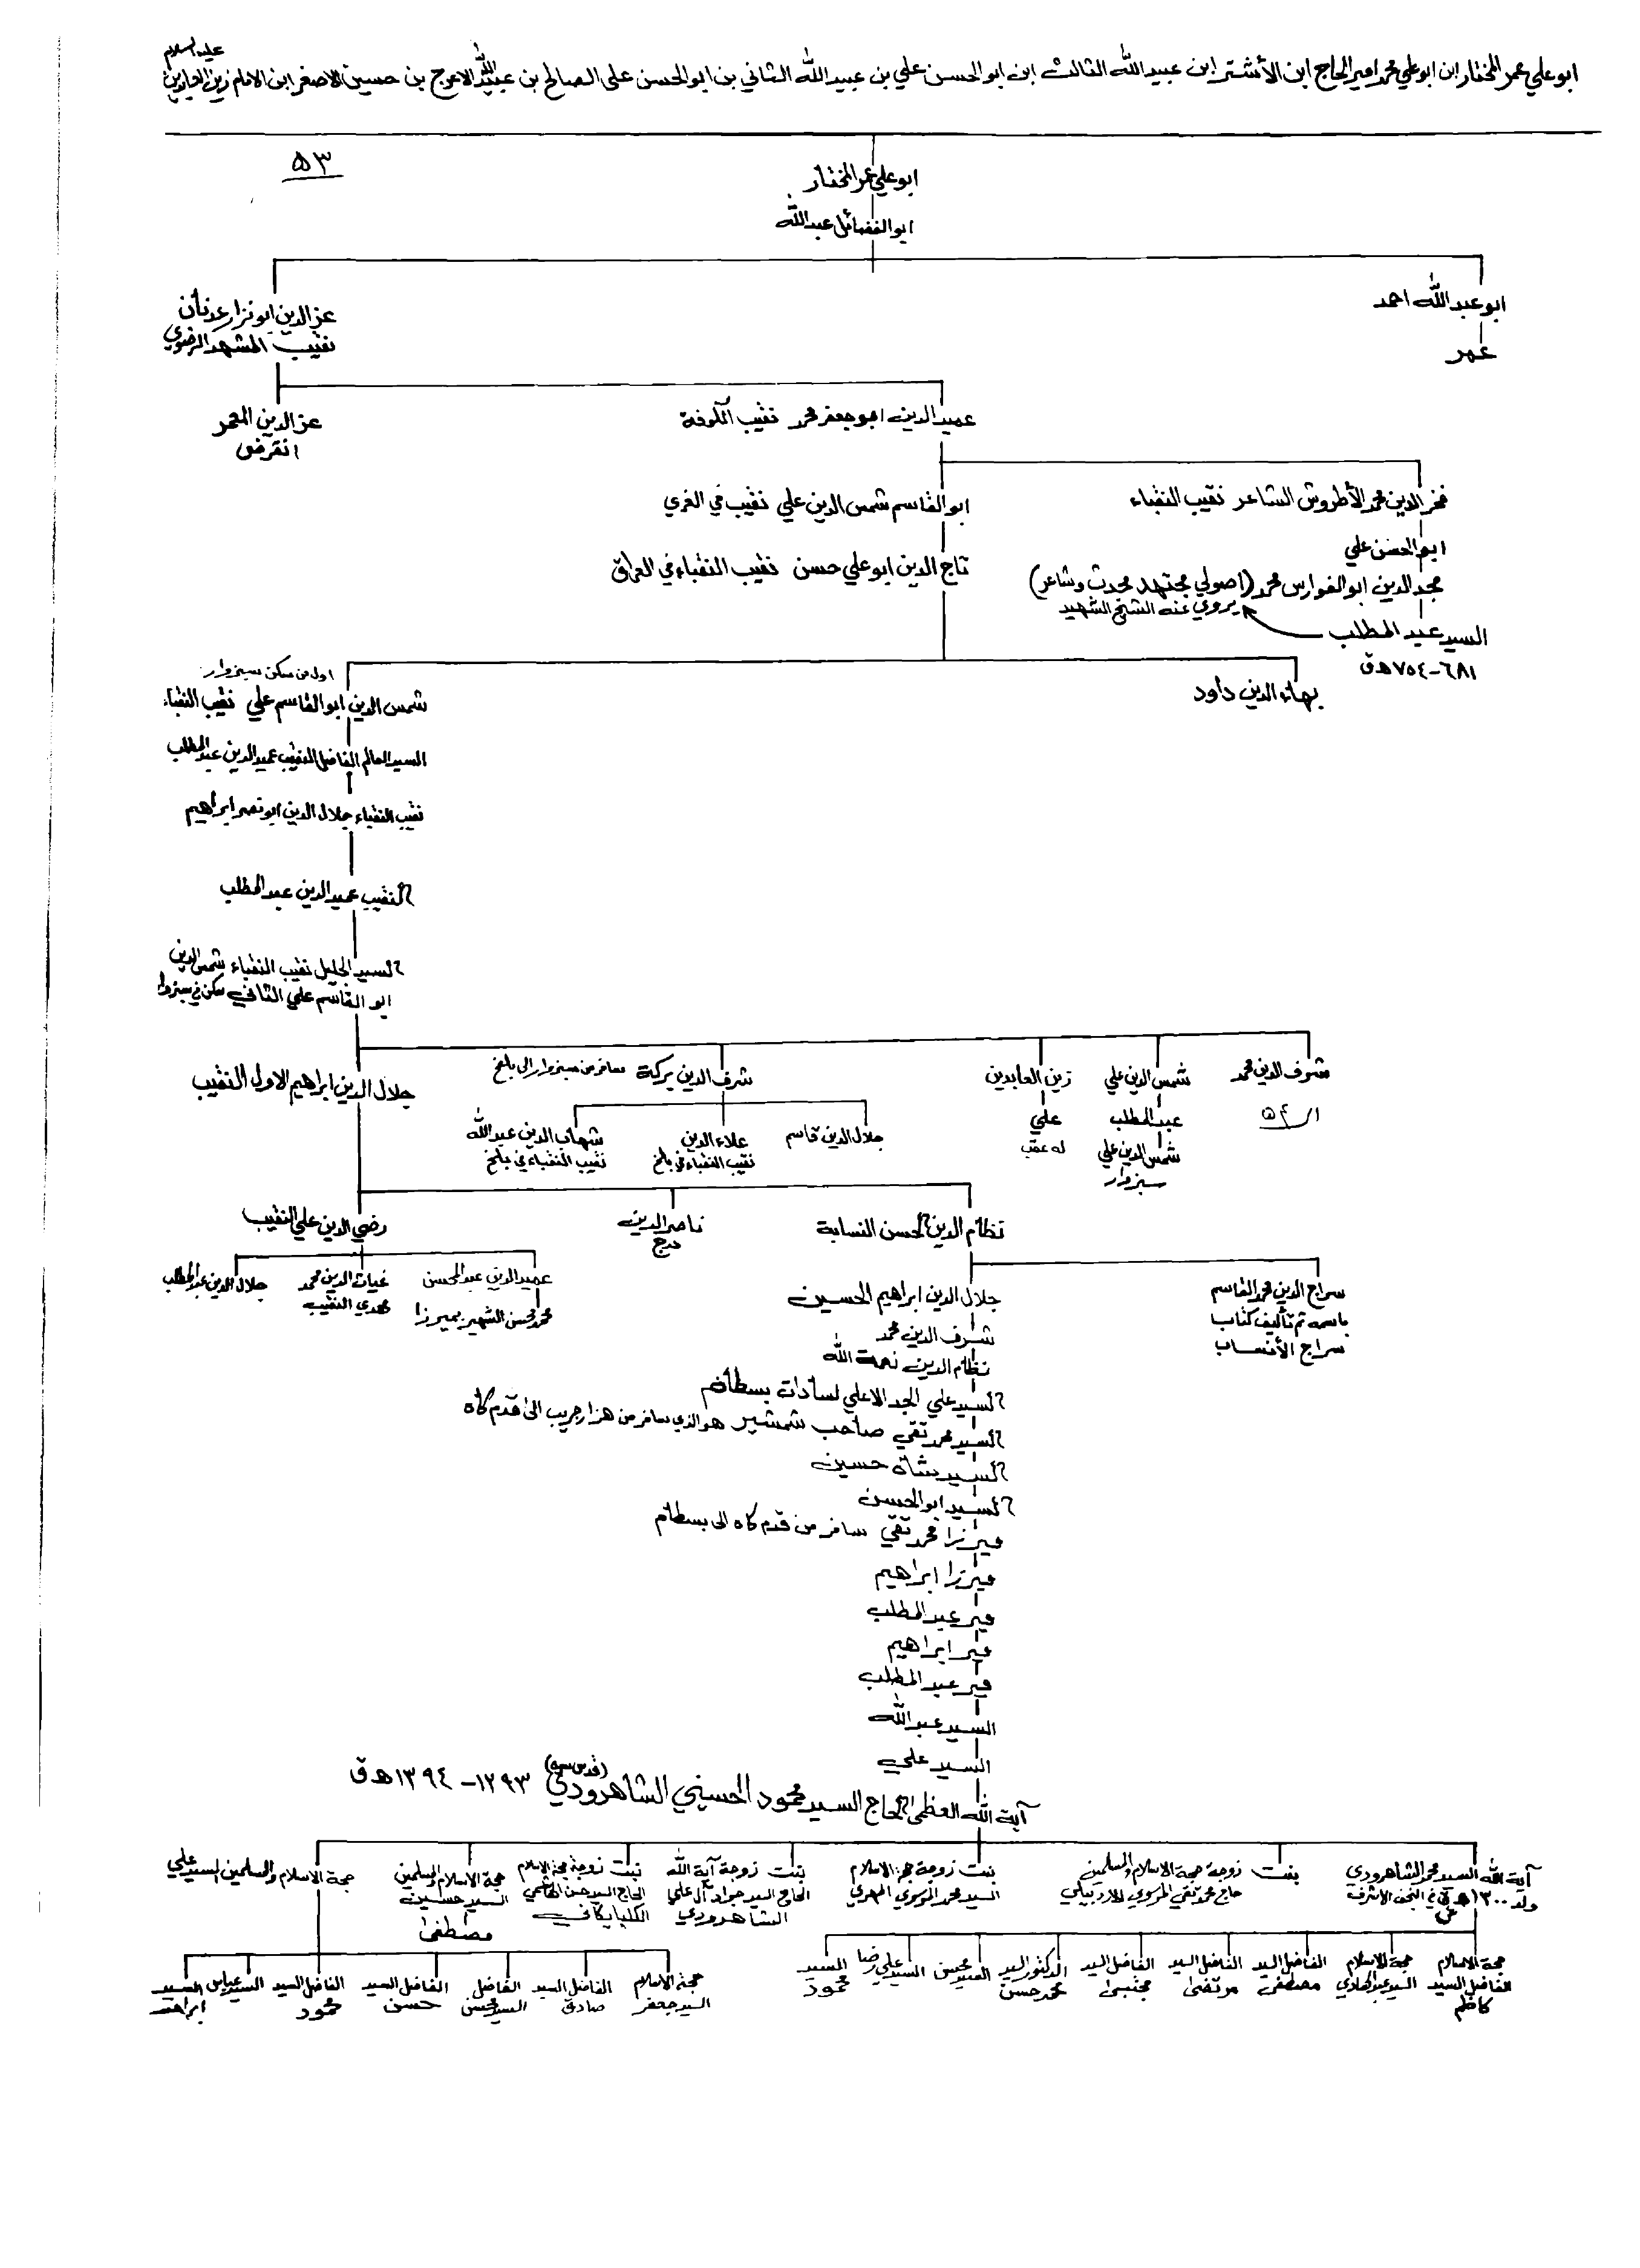 عليه السلام
ابو علي عمر المختار ابن ابو علي محمد امير الحاج ابن الأشتر ابن عبيد الله الثالث ابن ابو الحسن علي بن عبيد الله الثاني بن ابو الحسن علي الصالح بن عبيد الله الاعرج بن حسين الاصغر ابن الامام زين العابدين
٥٣
ابو علي عمر المختار
ابو الفضائل عبدالله
ابو عبد الله احمد
عمر
عز الدين ابو نزار عدنان
نقيب المشهد الرضوي
عميد الدين ابو جعفر محمد نقيب الكوفة
عز الدين المعمر
انقرض
فخر الدين محمد الأطروش الشاعر نقيب النقباء
ابو القاسم شمس الدين علي نقيب في الغري
ابو الحسن علي
تاج الدين ابو علي حسن نقيب النقباء في العراق
مجد الدين ابو الفوارس محمد (اصولي مجتهد محدث وشاعر)
يروي عنه الشيخ الشهيد
السيد عبد المطلب
٦٨١-٧٥٤ هـ ق
بهاء الدين داود
اول من سكن سبزوار
شمس الدين ابو القاسم علي نقيب النقباء
السيد العالم الفاضل النقيب عميد الدين عبد المطلب
نقيب النقباء جلال الدين ابو نصر ابراهيم
النقيب عميد الدين عبد المطلب
السيد الجليل نقيب النقباء شمس الدين
ابو القاسم علي الثاني سكن في سبزوار
شرف الدين محمد
شمس الدين علي
زين العابدين
شرف الدين بركة سافر من سبزوار الى بلخ
جلال الدين ابراهيم الاول النقيب
عبد المطلب
علي
شمس الدين علي
له عقب
سبزوار
جلال الدين قاسم
علاء الدين
نقيب النقباء في بلخ
شهاب الدين عبدالله
نقيب النقباء في بلخ
نظام الدين الحسن النسابة
ناصر الدين
درج
رضي الدين علي النقيب
سراج الدين محمد القاسم
باسمه تم تأليف كتاب
سراج الأنساب
عميد الدين عبد المحسن
محمد محسن الشهير بميرزا
غياث الدين محمد
مهدي النقيب
جلال الدين عبد المطلب
جلال الدين ابراهيم الحسين
شرف الدين محمد
نظام الدين نعمة الله
السيد علي الجد الاعلي لسادات بسطام
السيد محمد تقي صاحب شمشير هو الذي سافر من هزار جريب الى قدم كاه
السيد شاه حسين
السيد ابو الحسن
ميرزا محمد تقي سافر من قدم كاه الى بسطام
ميرزا ابراهيم
مير عبد المطلب
مير ابراهيم
مير عبد المطلب
السيد عبدالله
السيد علي
آية الله العظمى الحاج السيد محمود الحسيني الشاهرودي (قدس سره) ١٢٩٣-١٣٩٤ هـ ق
آية الله السيد محمد الشاهرودي
في النجف الاشرف
بنت زوجة حجة الاسلام والمسلمين
حاج محمد تقي الموسوي الاردبيلي
بنت زوجة حجة الاسلام
السيد محمد الموسوي المهري
بنت زوجة آية الله
الحاج السيد جواد آل علي
الشاهرودي
بنت زوجة حجة الاسلام
الحاج السيد حسن الهاشمي
الكلبايكاني
حجة الاسلام والمسلمين
السيد حسين
مصطفى
حجة الاسلام والمسلمين السيد علي
حجة الاسلام
الفاضل السيد
كاظم
حجة الاسلام
السيد عبد الهادي
الفاضل السيد
مصطفى
الفاضل السيد
مرتضى
الفاضل السيد
مجتبى
الدكتور السيد
محمد حسن
السيد محسن
السيد علي رضا
السيد
محمود
حجة الاسلام
السيد جعفر
الفاضل السيد
صادق
الفاضل
السيد محسن
الفاضل السيد
حسن
الفاضل السيد
محمود
السيد عباس
السيد
ابراهيم